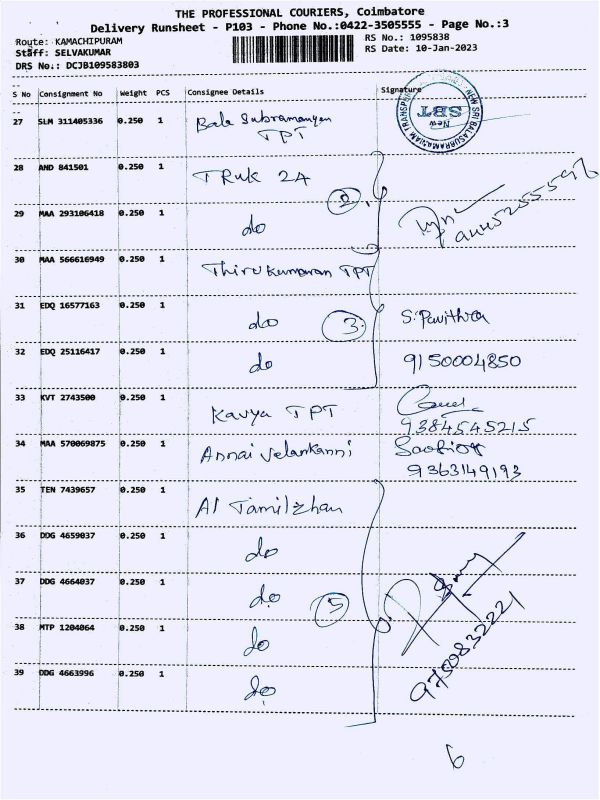 THE PROFESSIONAL COURIERS, Coimbatore
Delivery Runsheet - P103 - Phone No.:0422-3505555 - Page No.:3
Route: KAMACHIPURAM
RS No.: 1095838
Staff: SELVAKUMAR
RS Date: 10-Jan-2023
DRS No.: DCJB109583803
S No Consignment No Weight PCS Consignee Details Signature
27 SLM 311405336 0.250 1 Bala Subramanyan TPT
NEW SRI BALASUBRAMANIAM TRANSPORT
New
SBT
28 AND 841501 0.250 1 TRuk 24
2
29 MAA 293106418 0.250 1 do
30 MAA 566616949 0.250 1 Thirukumaran TPT
31 EDQ 16577163 0.250 1 do 3 S. Pavithra
32 EDQ 25116417 0.250 1 do 9150004850
33 KVT 2743500 0.250 1 Kavya TPT
9384545215
34 MAA 570069875 0.250 1 Annai Velankanni
9363149193
35 TEN 7439657 0.250 1 A1 Tamilzhan
36 DDG 4659037 0.250 1 do
37 DDG 4664037 0.250 1 do 5
38 MTP 1204064 0.250 1 do
9750832221
39 DDG 4663996 0.250 1 do
6